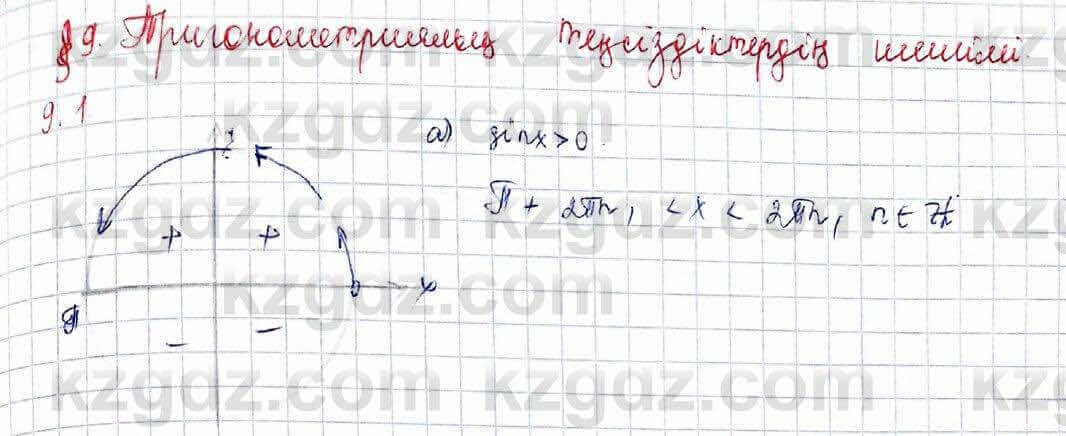 § 9. Тригонометриялық теңсіздіктердің шешімі.
9.1
а) sin x > 0.
π + 2πn, < x < 2πn, n ∈ Z
+ +
0 x
π
− −
kzgdz.com